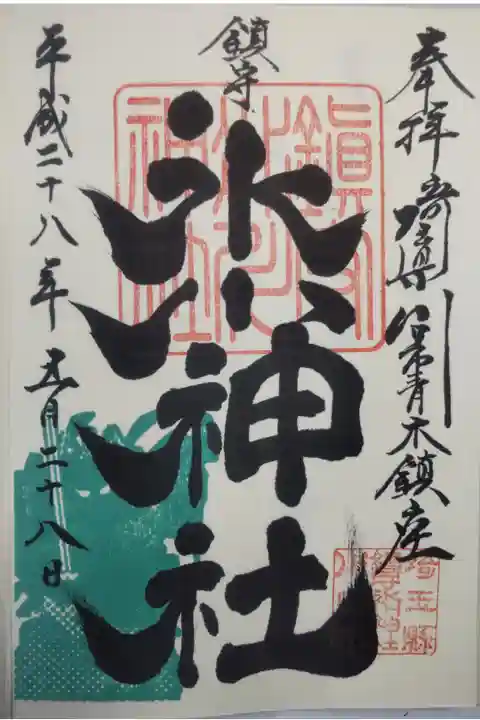 奉拝 埼玉県川口市青木鎮座
鎮守
氷川神社
平成二十八年五月二十八日
鎮守
氷川
神社
埼玉縣